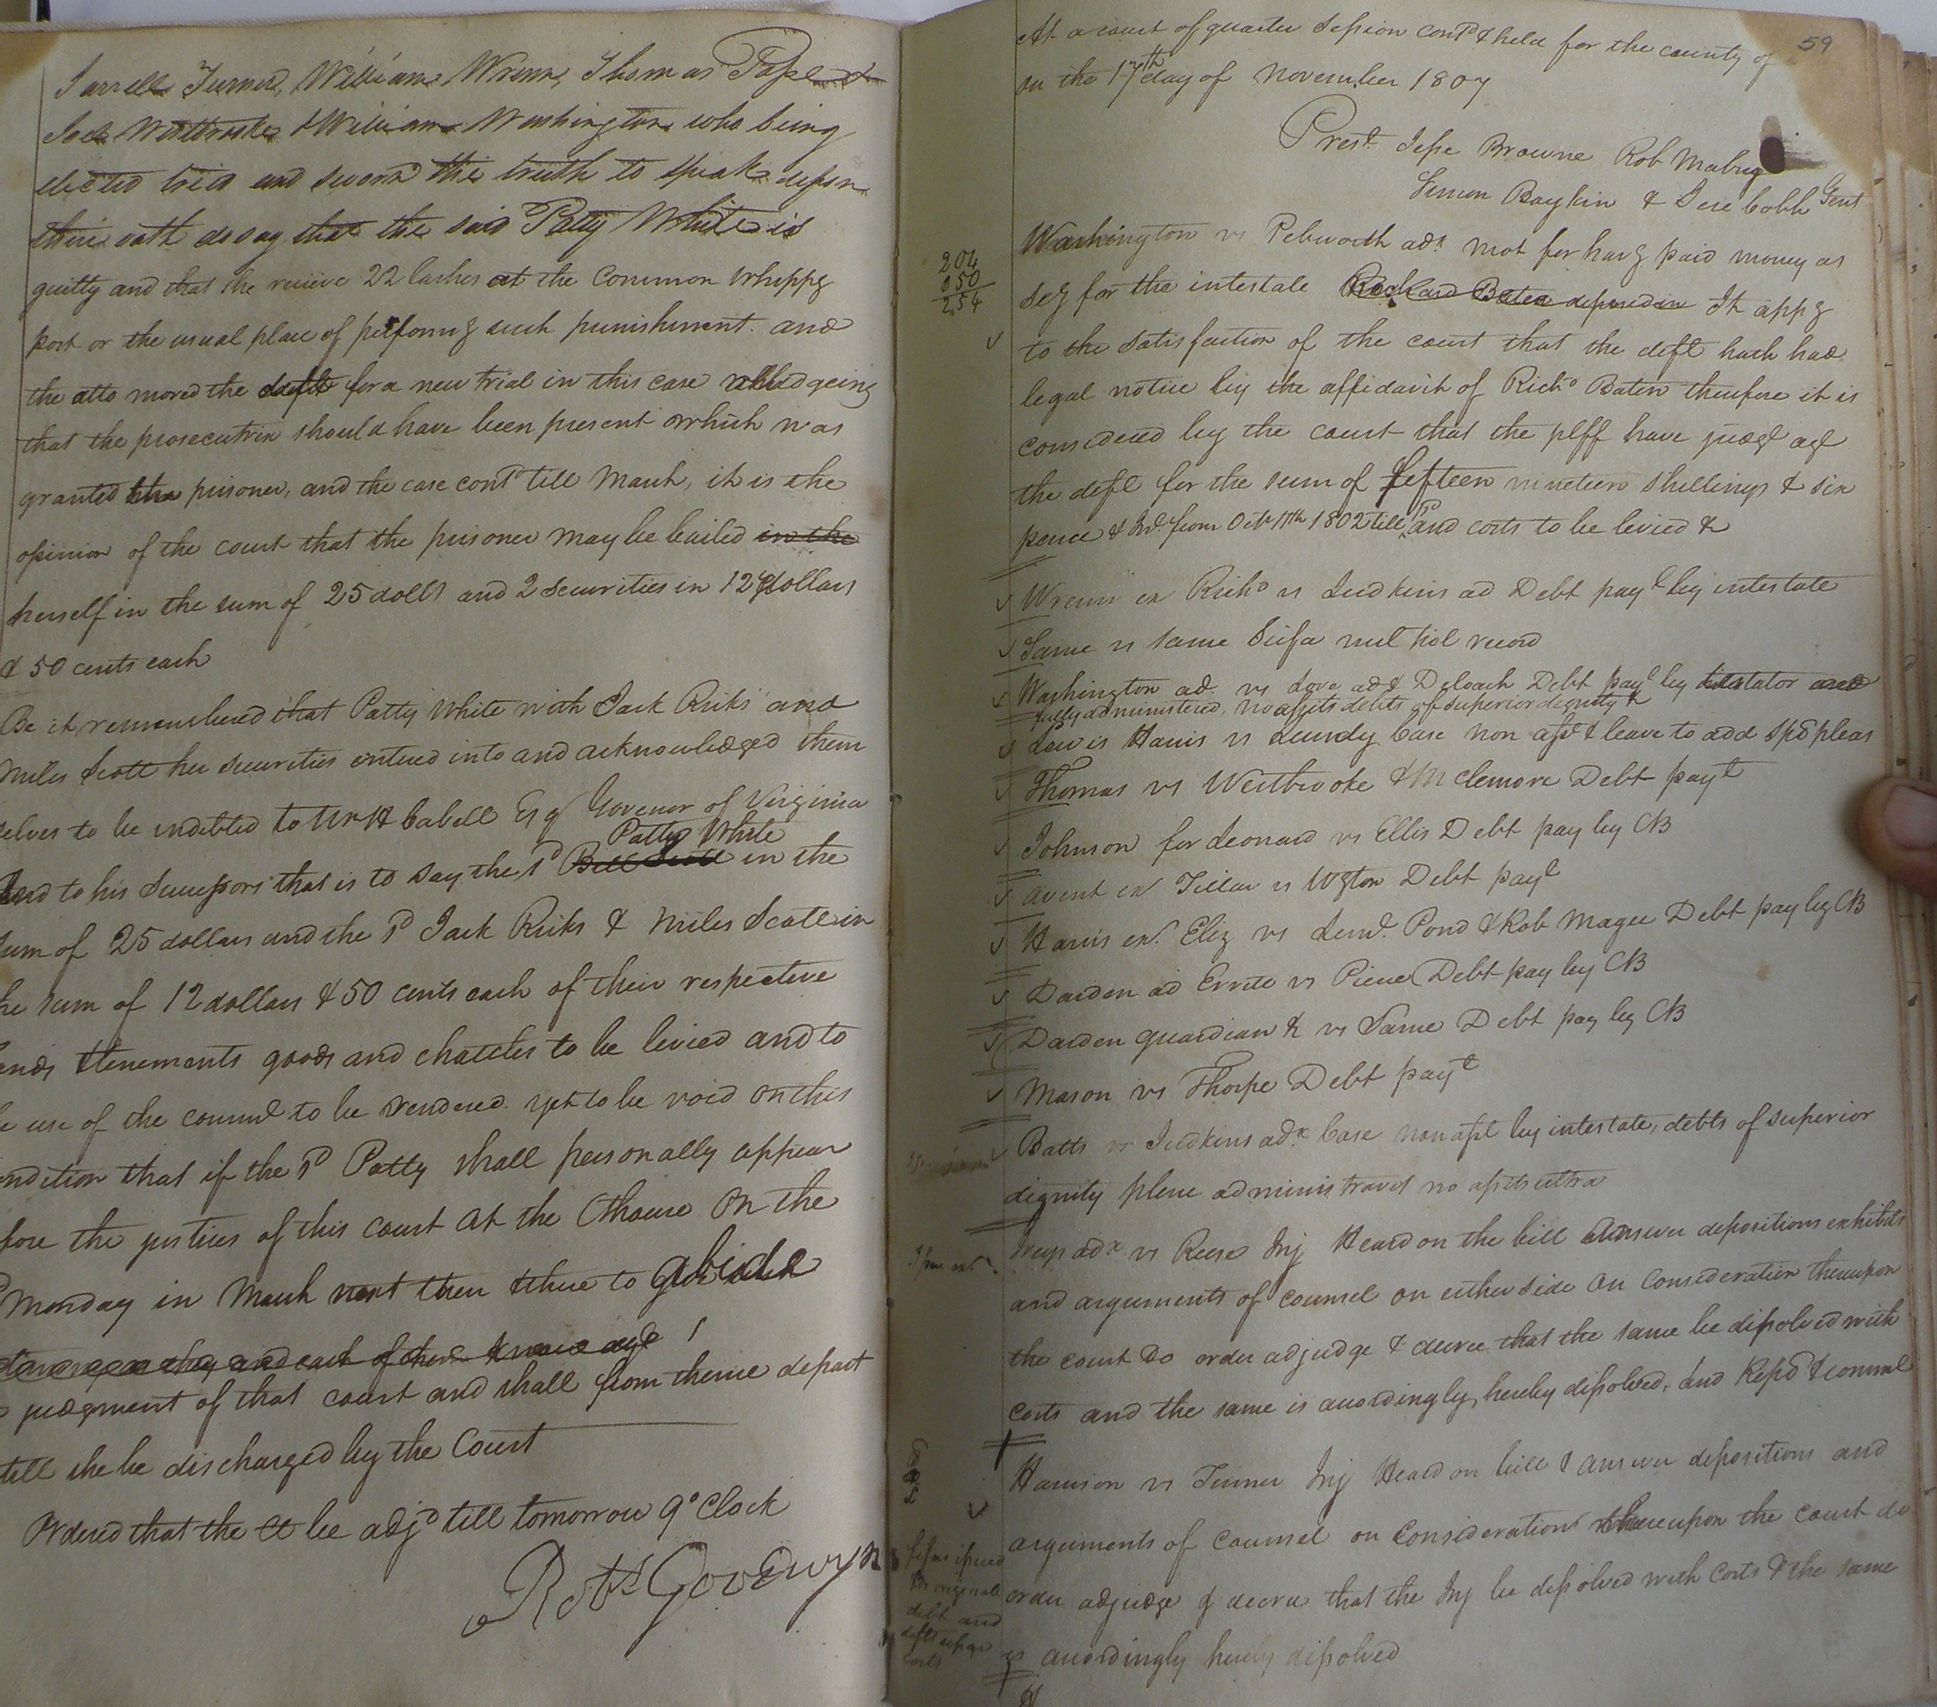 Jarrell Turner, William Wrenn, Thomas Pope &
Jack Westbrooke & William Washington who being
elected tried and sworn the truth to speak upon
their oath do say that the said Patty White is
guilty and that she receive 22 lashes at the common whippg
post or the usual place of performg such punishment and
the atto moved the for a new trial in this case alledgeing
that the prosecutrix should have been present which was
granted the prisoner, and the case contd till March, it is the
opinion of the court that the prisoner may be bailed in the
herself in the sum of 25 dolls and 2 securities in 12 dollars
& 50 cents each
Be it remembered that Patty White with Jack Ricks and
Miles Scott her securities entered into and acknowledged them
selves to be indebted to Wm H Cabell Esq Govenor of Virginia
Patty White
and to his Successors that is to say the sd Bill Scott in the
sum of 25 dollars and the sd Jack Ricks & Miles Scott in
the sum of 12 dollars & 50 cents each of their respective
lands & tenements goods and chatteles to be levied and to
the use of the commd to be rendered yet to be void on this
condition that if the sd Patty shall personally appear
before the justices of this court at the Cthouse on the
Monday in March next then & there to abide
they and each of them
judgment of that court and shall from thence depart
till she be discharged by the Court
Ordered that the Ct be adjd till tomorrow 9 oClock
Robt Goodwyn
59
At a court of quarter Session contd & held for the county of
on the 17th day of November 1807
Prest Jesse Browne Rob Mabry
Simon Boykin & Jere Cobb Gent
204
050
254
Washington vs Pebworth adx mot for havg paid money as
secy for the intestate Richard Baten deposed in It appg
to the satisfaction of the court that the deft hath had
legal notice by the affidavit of Richd Baten therefore it is
considered by the court that the plff have judgt agt
the deft for the sum of fifteen nineteen shillings & six
pence & Int from Octr 11th 1802 till pd and costs to be levied &
Wrenn ex Richd vs Judkins ad Debt payt by intestate
Same vs same Scifa nul tiel record
Washington ad. vs Love ad & Deloach Debt payt by testator and
fully administered, no assets debts of superior dignity &
Lewis Harris vs Lundy Case non asst & leave to add spd pleas
Thomas vs Westbrooke & McClemore Debt payt
Johnson for Leonard vs Ellis Debt pay by CB
Avent ex Tillar vs Wgton Debt payt
Harris ex. Eliz vs Leml. Pond & Rob Magee Debt pay by CB
Darden ad Errite vs Pierce Debt pay by CB
Darden guardian & vs Same Debt pay by CB
Mason vs Thorpe Debt payt
Batts vs Judkins adx Case non asst by intestate, debts of superior
dignity plene administravit no assets ultra
adx vs Reese Inj Heard on the bill answer depositions exhibits
and arguments of counsel on either side on consideration thereupon
the court do order adjudge & decree that the same be dissolved with
costs and the same is accordingly hereby dissolved.
Harrison vs Turner Inj Heard on bill & answer depositions and
arguments of counsel on consideration thereupon the court do
order adjudge & decree that the Inj be dissolved with costs & the same
is accordingly hereby dissolved
fifas issued
for original
debt and
costs